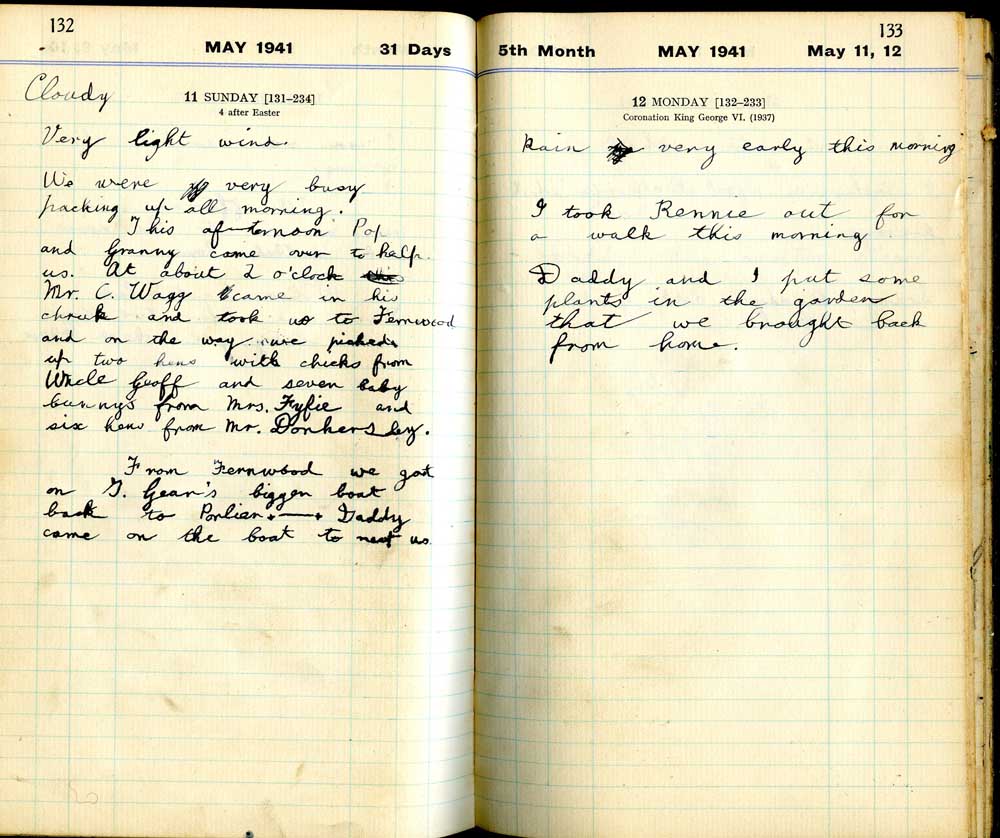 132
MAY 1941 31 Days
Cloudy
11 SUNDAY [131–234]
4 after Easter
Very light wind.
We were very busy
packing up all morning.
This afternoon Pop
and Granny came over to help
us. At about 2 o'clock this
Mr. C. Wagg came in his
and took us to Fernwood
and on the way we picked
up two hens with chicks from
Uncle Geoff and seven baby
bunnys from Mrs. Fyfie and
six hens from Mr. Donkersley.
From Fernwood we got
on G. Gear's bigger boat
back to Porlier Daddy
came on the boat to us.
133
5th Month MAY 1941 May 11, 12
12 MONDAY [132–233]
Coronation King George VI. (1937)
Rain very early this morning
I took Rennie out for
a walk this morning.
Daddy and I put some
plants in the garden
that we brought back
from home.